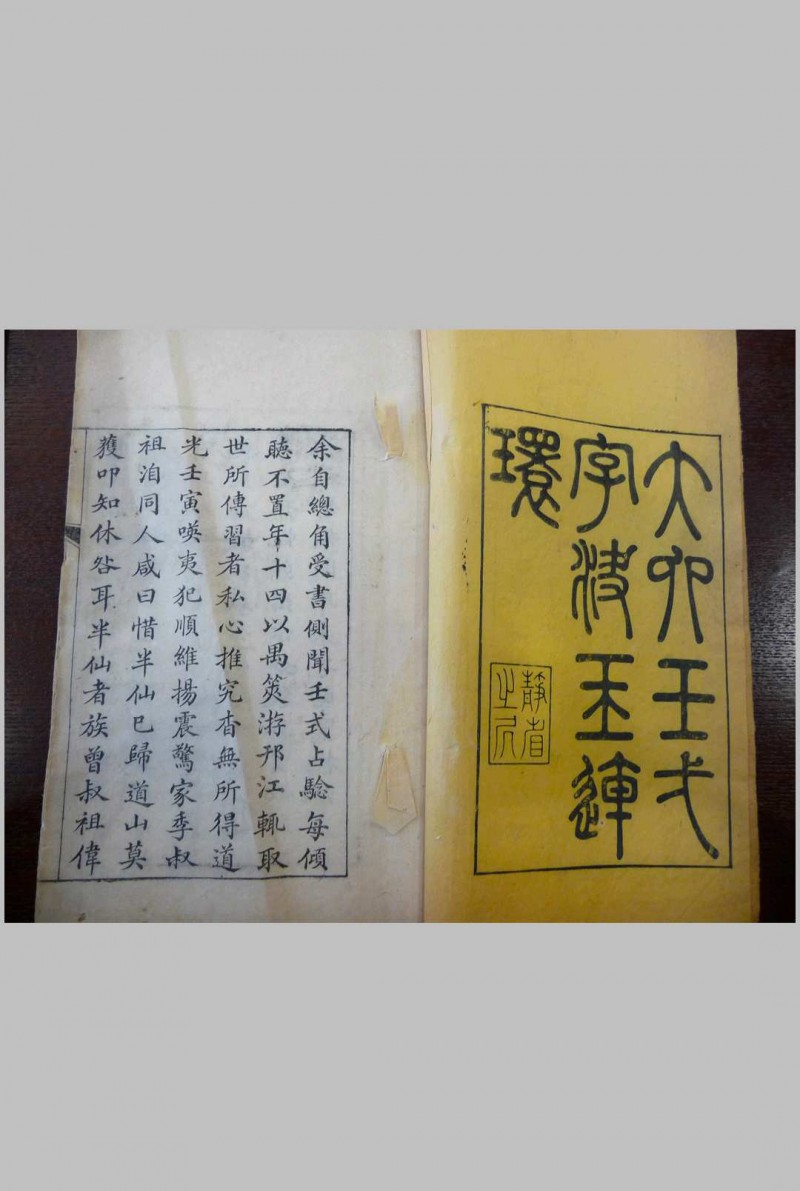 大六壬弌
字決玉連
環
余自總角受書側聞壬式占騐每傾
聽不置年十四以禺筴游邗江輒取
世所傳習者私心推究杳無所得道
光壬寅暎夷犯順維揚震驚家季叔
祖洎同人咸曰惜半仙已歸道山莫
獲叩知休咎耳半仙者族曾叔祖偉